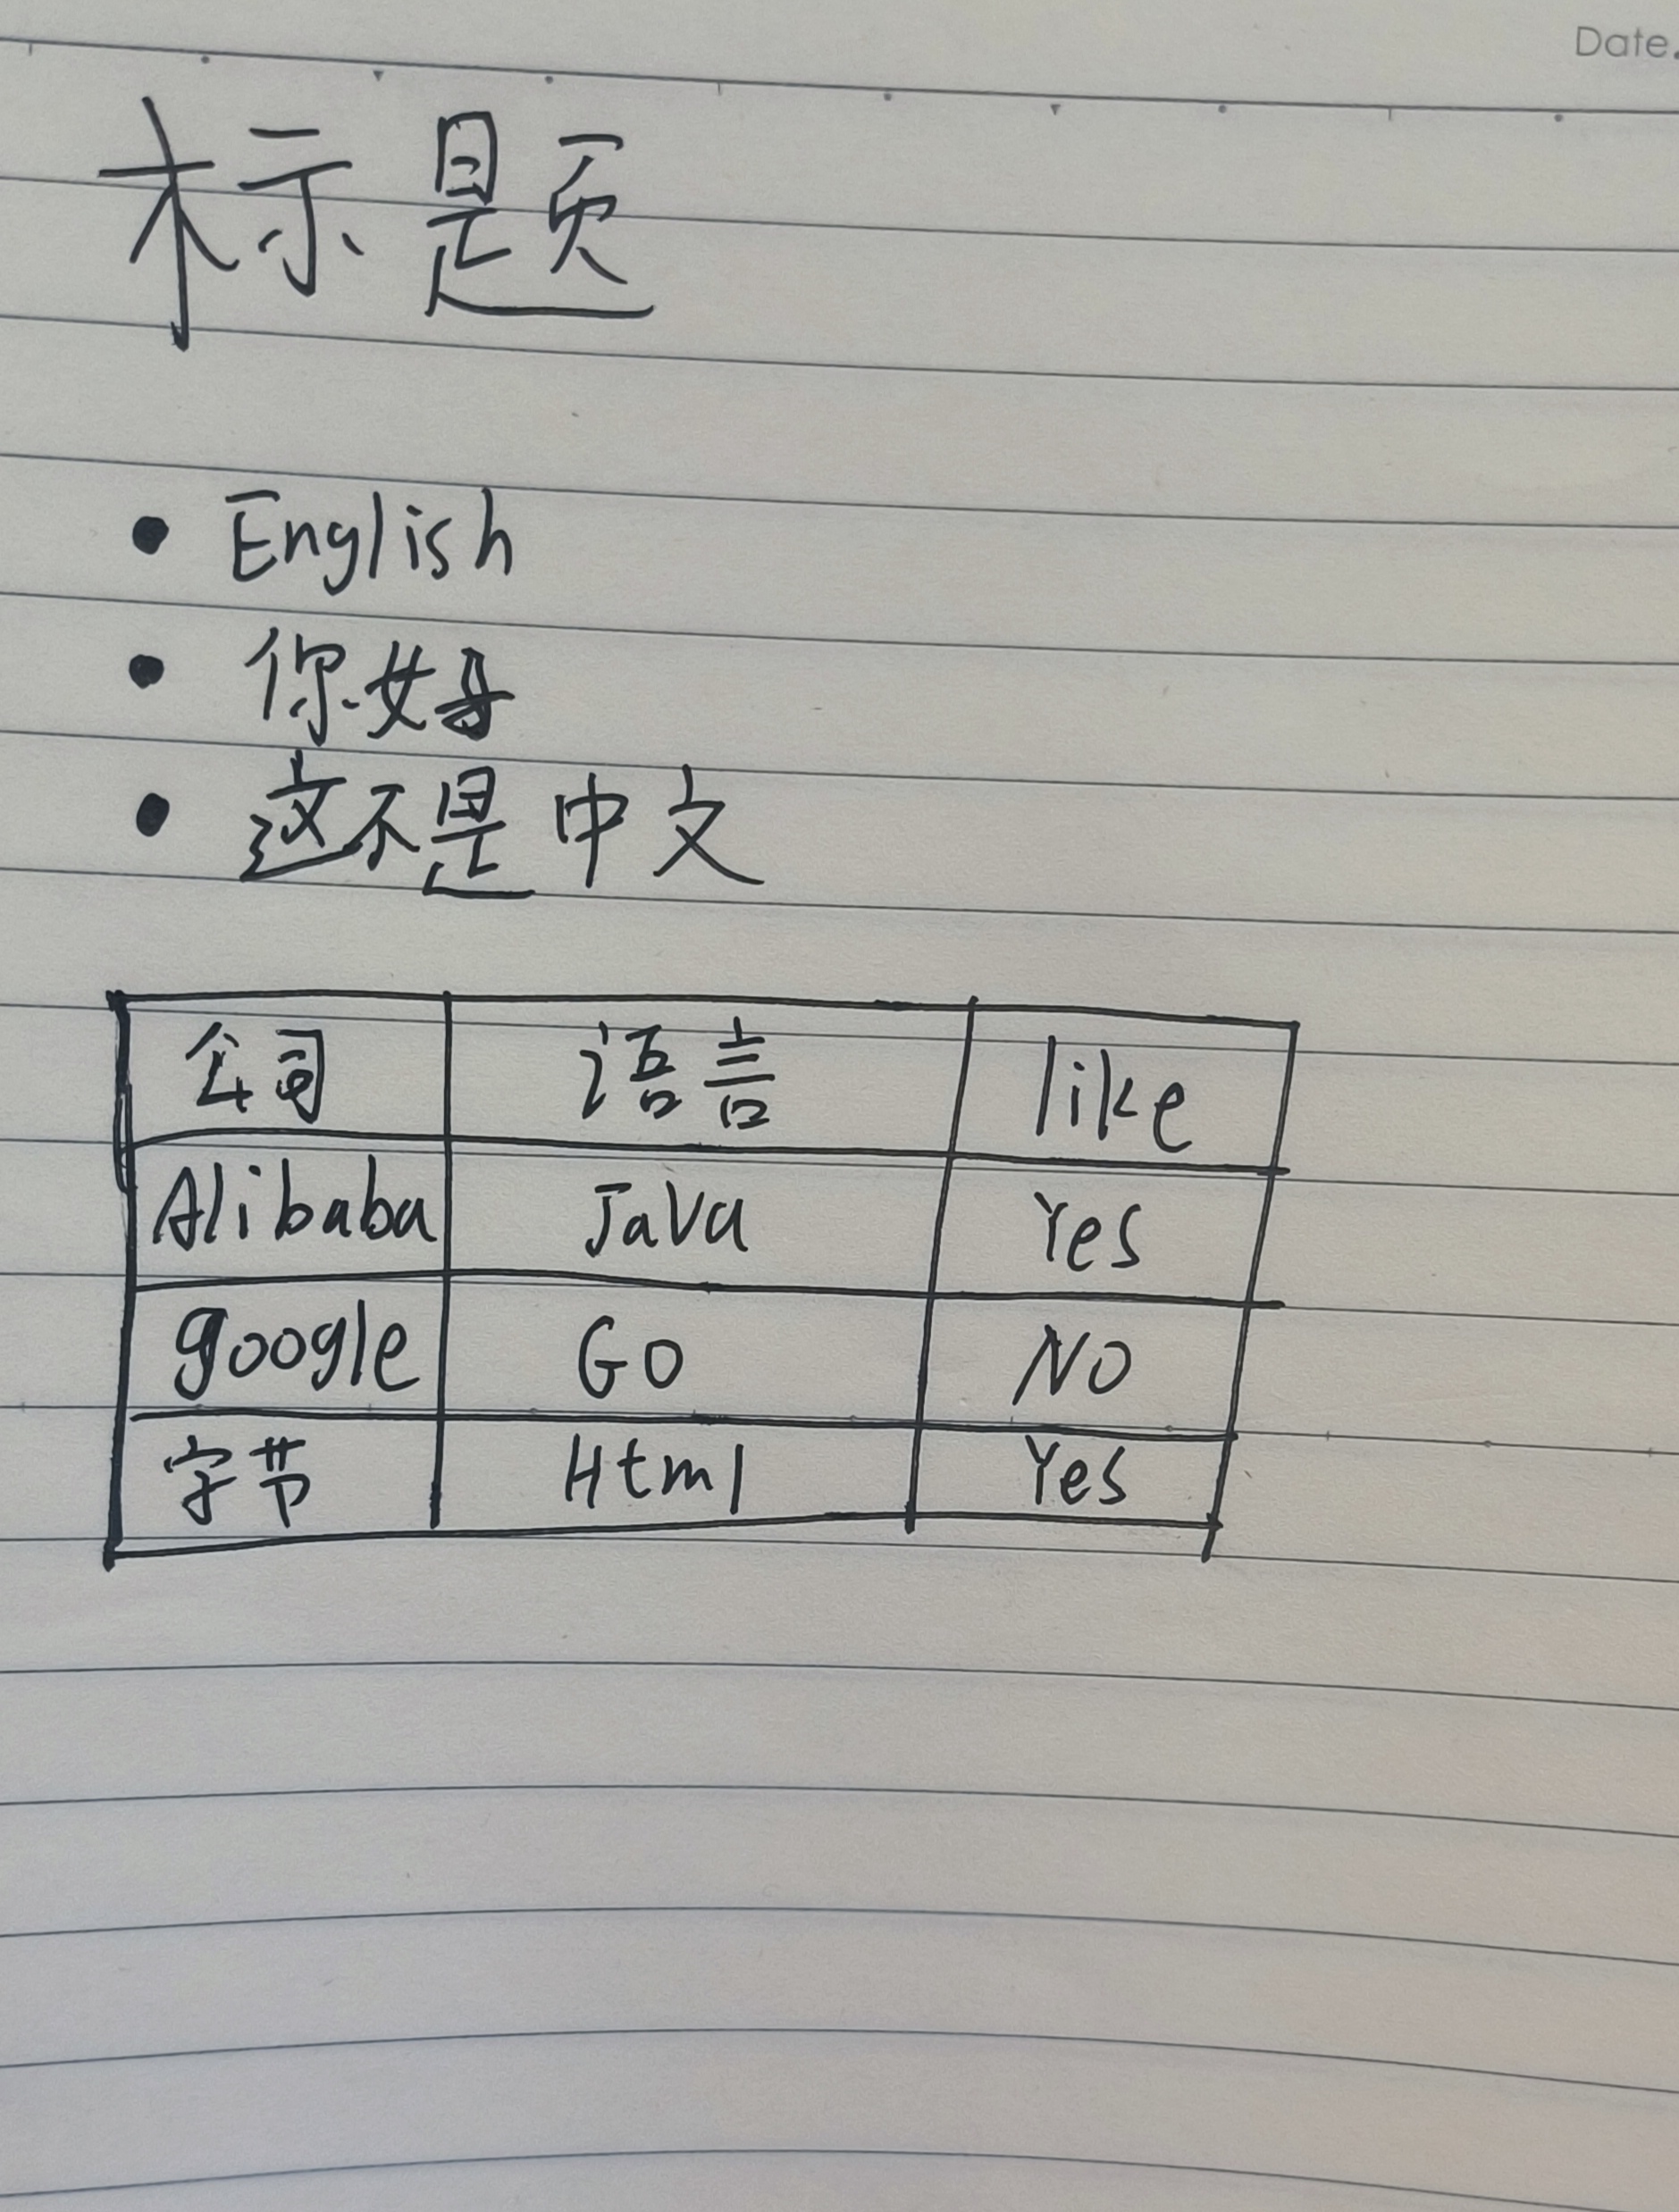 Date.
标题
• English
• 你好
• 这不是中文
公司 语言 like
Alibaba Java Yes
google Go NO
字节 Html Yes